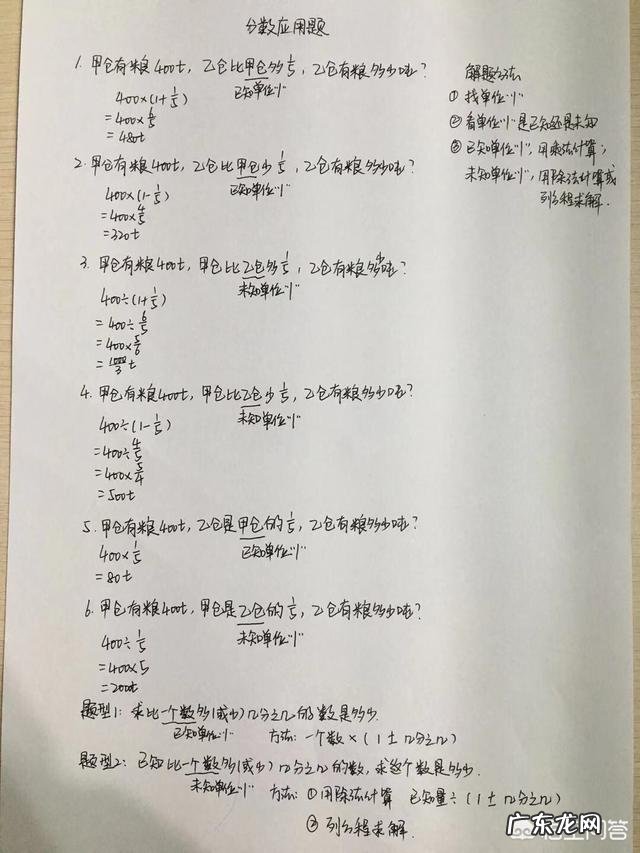 分数应用题
1. 甲仓有粮400t, 乙仓比甲仓多1/5, 乙仓有粮多少吨?
已知单位"1"
400×(1+1/5)
=400×6/5
=480t
2. 甲仓有粮400t, 乙仓比甲仓少1/5, 乙仓有粮多少吨?
已知单位"1"
400×(1-1/5)
=400×4/5
=320t
3. 甲仓有粮400t, 甲仓比乙仓多1/5, 乙仓有粮多少吨?
未知单位"1"
400÷(1+1/5)
=400÷6/5
=400×5/6
=1000/3 t
4. 甲仓有粮400t, 甲仓比乙仓少1/5, 乙仓有粮多少吨?
未知单位"1"
400÷(1-1/5)
=400÷4/5
=400×5/4
=500t
5. 甲仓有粮400t, 乙仓是甲仓的1/5, 乙仓有粮多少吨?
已知单位"1"
400×1/5
=80t
6. 甲仓有粮400t, 甲仓是乙仓的1/5, 乙仓有粮多少吨?
未知单位"1"
400÷1/5
=400×5
=2000t
题型1: 求比一个数多(或少)几分之几的数是多少.
已知单位"1" 方法: 一个数×(1±几分之几)
题型2: 已知比一个数多(或少)几分之几的数, 求这个数是多少.
未知单位"1" 方法: ①用除法计算 已知量÷(1±几分之几)
②列方程求解.
解题方法
①找单位"1"
②看单位"1"是已知还是未知
③已知单位"1", 用乘法计算;
未知单位"1", 用除法计算或
列方程求解.
广东龙网